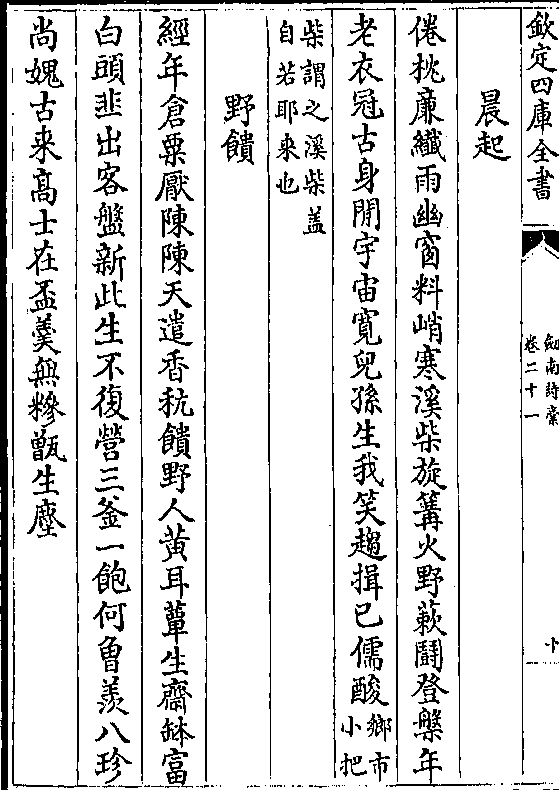 欽定四庫全書
劍南詩稾
卷二十一
十
晨起
倦枕廉纖雨幽窗料峭寒溪柴旋篝火野蔌鬭登槃年
老衣冠古身閒宇宙寛兒孫生我笑趨揖已儒酸鄉市小把
柴謂之溪柴蓋
自若耶来也
野饋
經年倉粟厭陳陳天遣香秔饋野人黄耳蕈生齋鉢富
白頭韭出客盤新此生不復營三釡一飽何曾羨八珍
尚媿古来髙士在盃羮無糝甑生塵